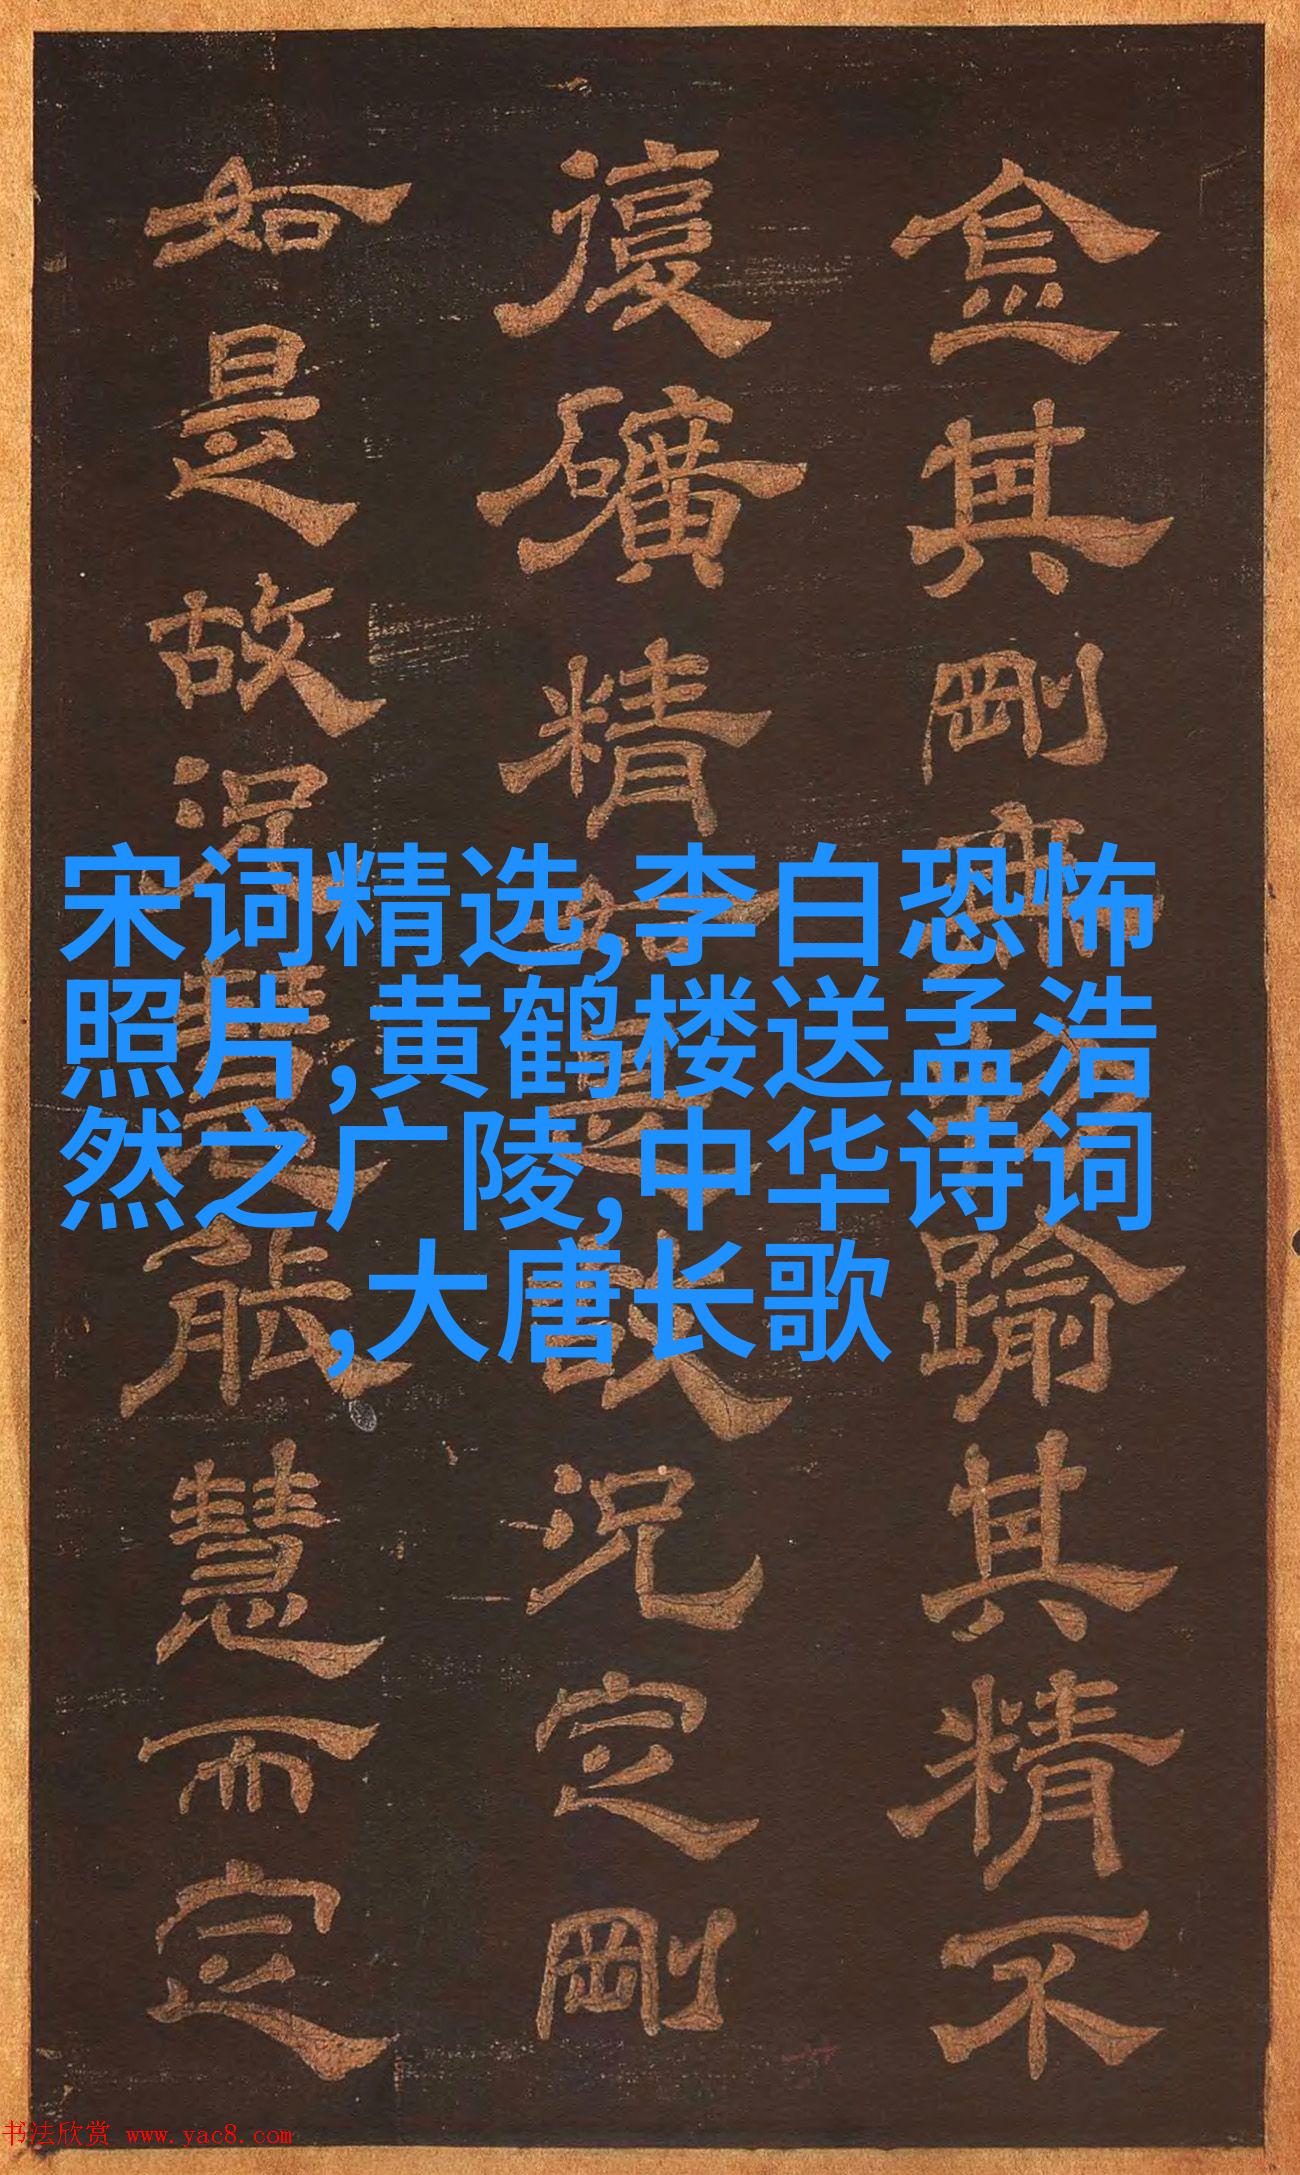 宋词精选,李白恐怖
照片,黄鹤楼送孟浩
然之广陵,中华诗词
,大唐长歌
金其剛踰其精不
復礦精是故況定剛
如是故況慧能慧而定
书法欣赏 www.yac8.com